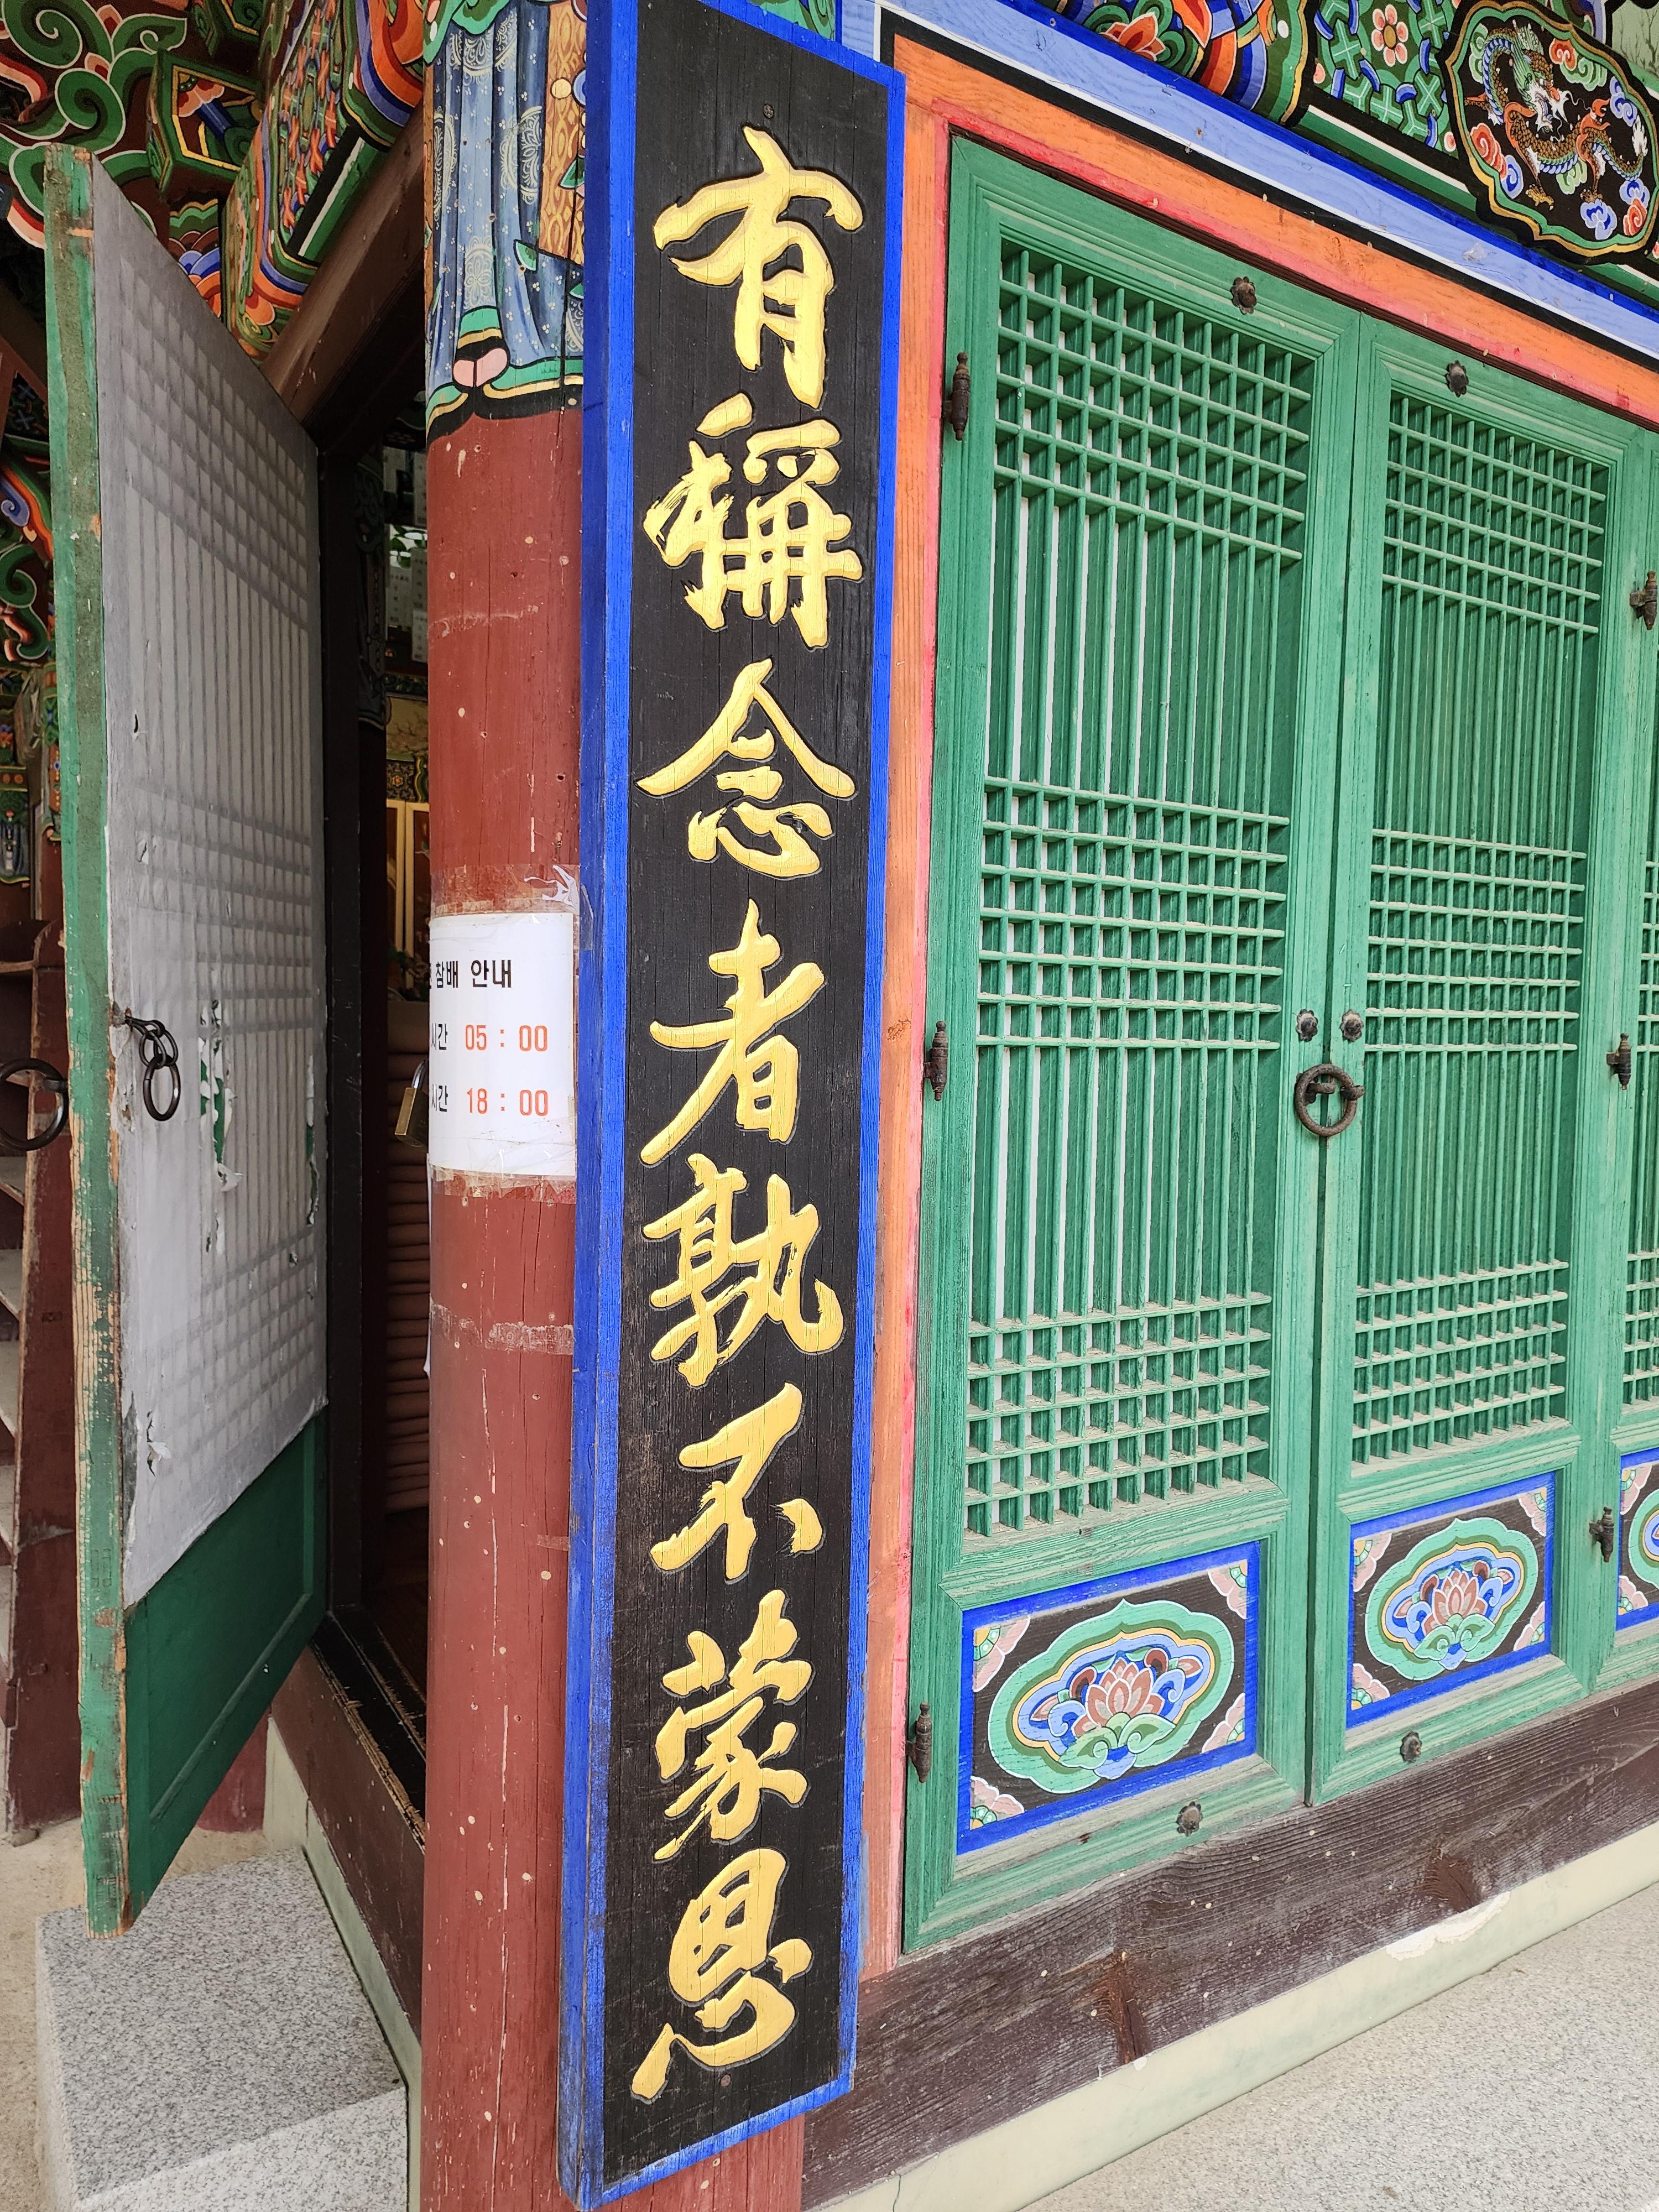 有稱念者孰不蒙恩
참배 안내
시간 05 : 00
시간 18 : 00